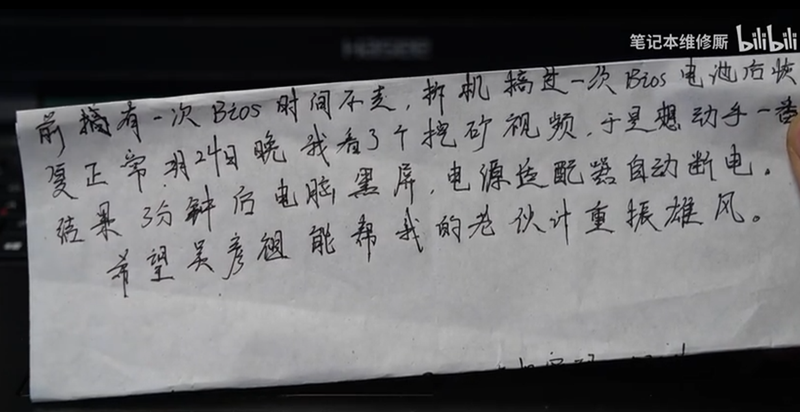 笔记本维修厮 bilibili
前摘有一次Bios时间不走,拆机搞过一次Bios电池后恢
复正常.月24日晚我看了个挖矿视频,于是想动手一番
结果3分钟后电脑黑屏,电源适配器自动断电。
希望吴彦祖能帮我的老伙计重振雄风。